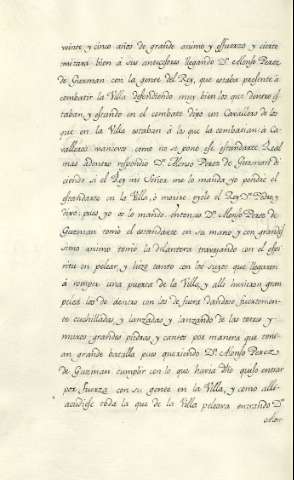 veinte y cinco años de grande animo y esfuerzo, y cierto
imitara bien à sus antecesores llegando Dⁿ. Alonso Perez
de Guzman con la gente del Rey, que estaba presente à
combatir la Villa defendiendo muy bien los que dentro es
taban y estando en el combate dijo un Cavallero de los
que en la Villa estaban à los que la combatian: à Ca
valleros como no se pone ese estandarte Real
mas adentro respondio Dⁿ. Alonso Perez de Guzman di
ciendo si el Rey mi Señor me lo manda yo pondre el
estandarte en la Villa, ò muerto oyolo el Rey Dⁿ. Pedro, y
dijo: pues yo os lo mando. entonces Dⁿ. Alonso Perez de
Guzman tomò el estandarte en su mano y con grandi
simo animo tomò la delantera travajando con el espi
ritu en pelear, y hizo tanto con los suyos que llegaron
à romper una puerta de la Villa, y alli hicieron gran
pelea los de dentro con los de fuera dandose fuertemen
te cuchilladas y lanzadas y lanzando de las torres y
muros grandes piedras y cantos por manera que tení
an grande batalla pues queriendo Dⁿ. Alonso Perez
de Guzman cumplir con lo que havia dho quiso entrar
por fuerza con su gente en la Villa, y como alli
acudiese toda la que de la Villa peleava entrando Dⁿ.
Alon